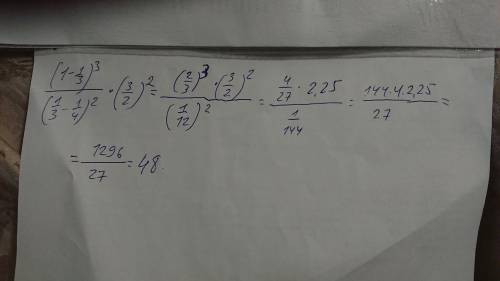 (1-1/3)^3 / (1/3-1/4)^2 · (3/2)^2 = (2/3)^3 · (3/2)^2 / (1/12)^2 = 4/27 · 2,25 / 1/144 = 144·4·2,25 / 27 =
= 1296/27 = 48.